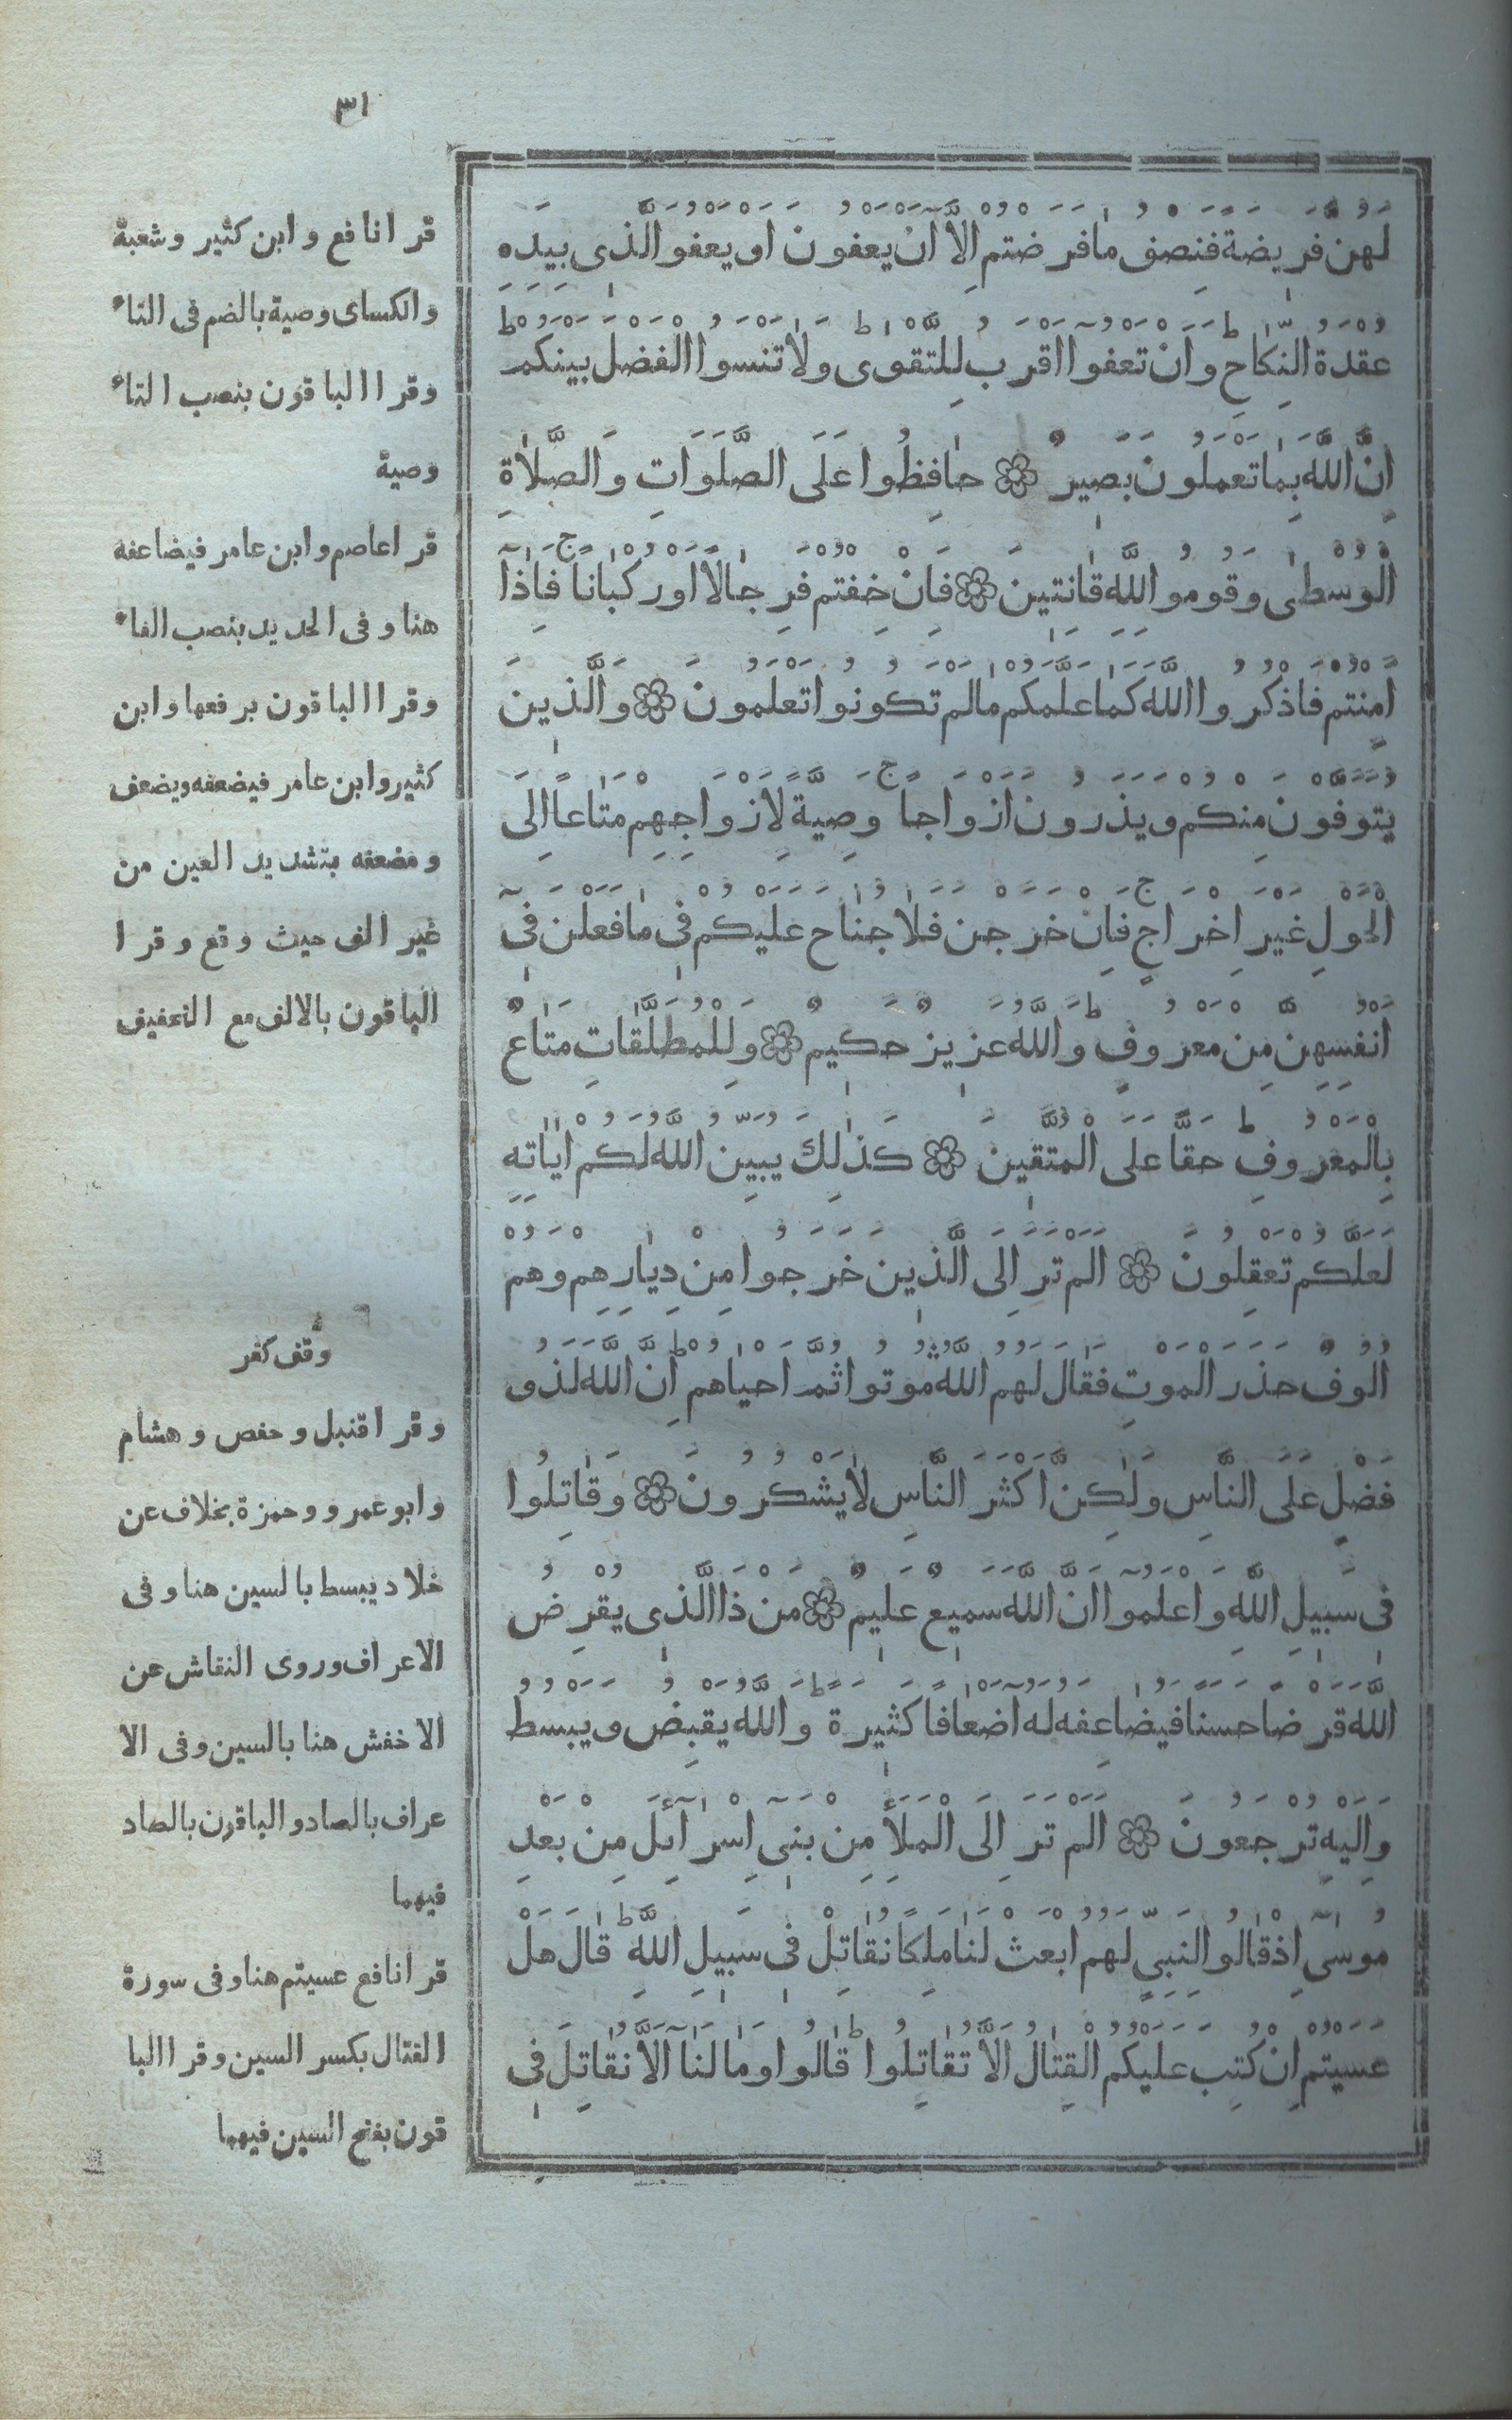 ٣١
لهن فريضة فنصف ما فرضتم الا ان يعفون او يعفو الذي بيده
عقدة النكاح وان تعفوا اقرب للتقوى ولا تنسوا الفضل بينكم
ان الله بما تعملون بصير ۞ حافظوا على الصلوات والصلاة
الوسطى وقوموا لله قانتين ۞ فان خفتم فرجالا او ركبانا فاذا
امنتم فاذكروا الله كما علمكم ما لم تكونوا تعلمون ۞ والذين
يتوفون منكم ويذرون ازواجا وصية لازواجهم متاعا الى
الحول غير اخراج فان خرجن فلا جناح عليكم في ما فعلن في
انفسهن من معروف والله عزيز حكيم ۞ وللمطلقات متاع
بالمعروف حقا على المتقين ۞ كذلك يبين الله لكم اياته
لعلكم تعقلون ۞ الم تر الى الذين خرجوا من ديارهم وهم
الوف حذر الموت فقال لهم الله موتوا ثم احياهم ان الله لذو
فضل على الناس ولكن اكثر الناس لا يشكرون ۞ وقاتلوا
في سبيل الله واعلموا ان الله سميع عليم ۞ من ذا الذي يقرض
الله قرضا حسنا فيضاعفه له اضعافا كثيرة والله يقبض ويبسط
واليه ترجعون ۞ الم تر الى الملأ من بني اسرائل من بعد
موسى اذ قالوا لنبي لهم ابعث لنا ملكا نقاتل في سبيل الله قال هل
عسيتم ان كتب عليكم القتال الا تقاتلوا قالوا وما لنا الا نقاتل في
قرا نافع وابن كثير وشعبة
والكساى وصية بالضم فى التاء
وقرا الباقون بنصب التاء
وصية
قرا عاصم وابن عامر فيضاعفه
هنا وفى الحديد بنصب الفاء
وقرا الباقون برفعها وابن
كثير وابن عامر فيضعفه ويضعف
ومضعفه بتشديد العين من
غير الف حيث وقع وقرا
الباقون بالالف مع التخفيف
وقف كفر
وقرا قنبل وحفص وهشام
وابو عمرو وحمزة بخلاف عن
خلاد يبسط بالسين هنا وفى
الاعراف وروى النقاش عن
الاخفش هنا بالسين وفى الا
عراف بالصاد والباقون بالصاد
فيهما
قرا نافع عسيتم هنا وفى سورة
القتال بكسر السين وقرا البا
قون بفتح السين فيهما